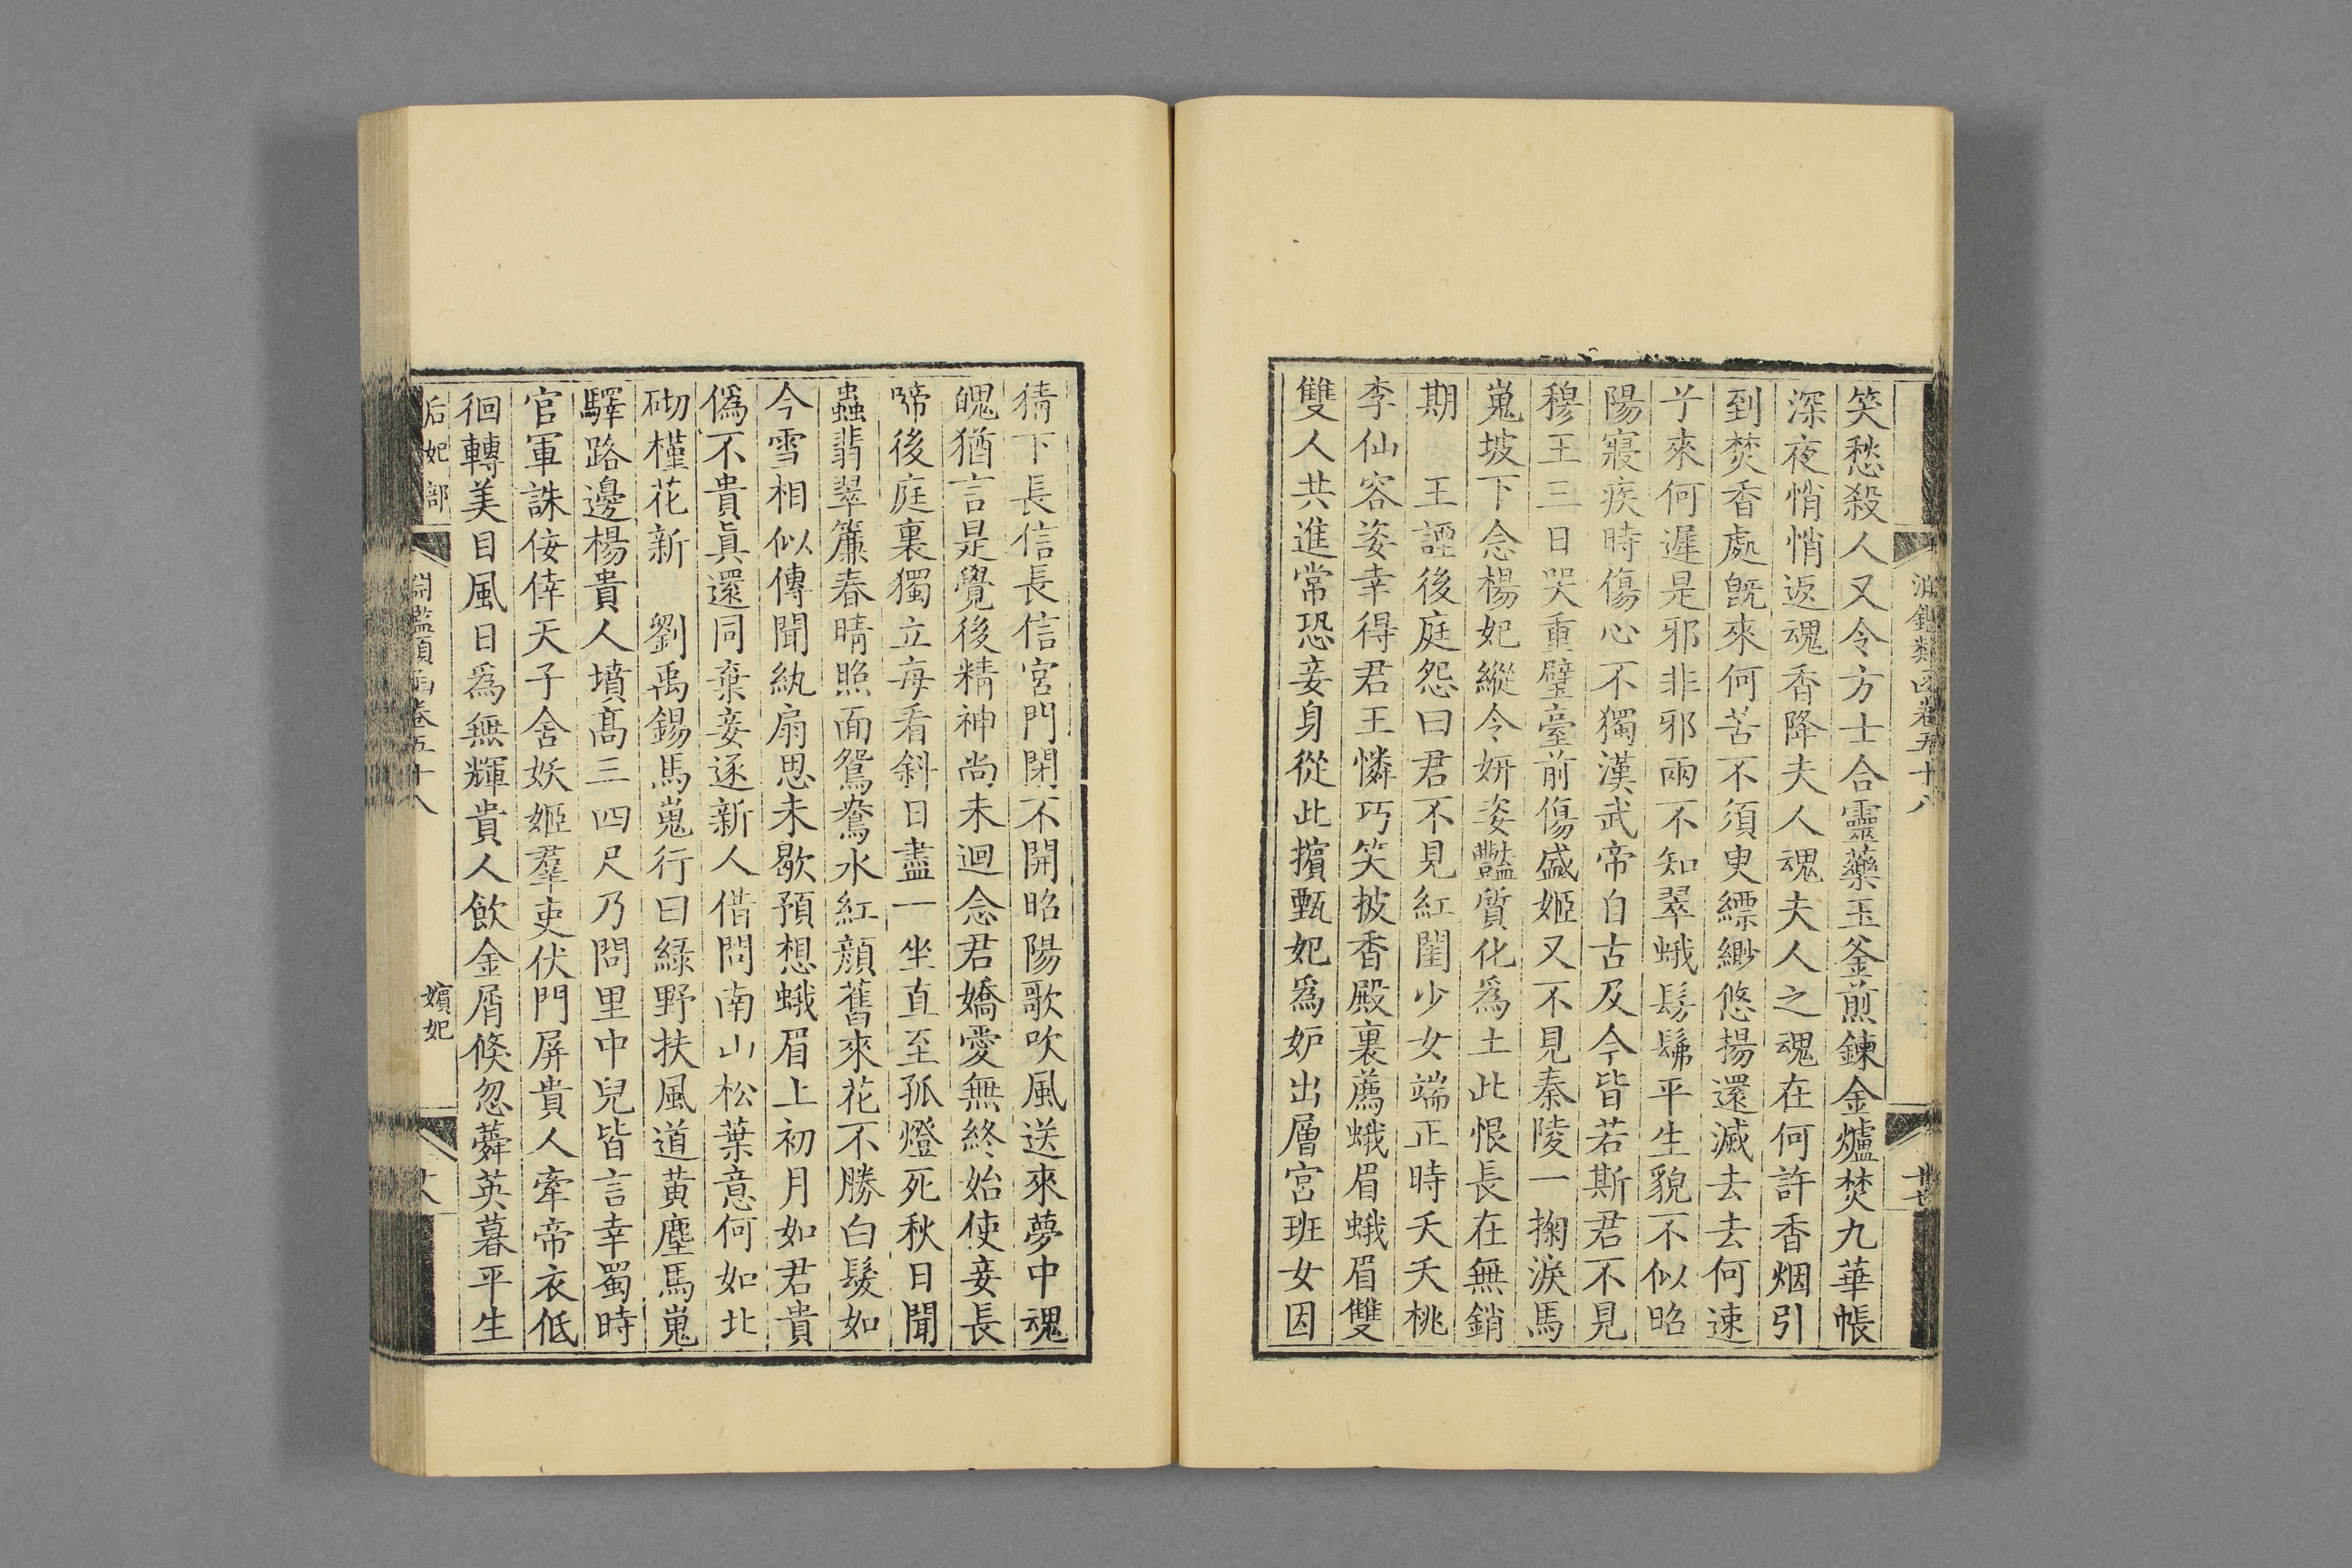 笑愁殺人又令方士合靈藥玉釜煎鍊金爐焚九華帳
深夜悄悄返魂香降夫人魂夫人之魂在何許香烟引
到焚香處旣來何苦不須臾縹緲悠揚還滅去去何速
兮來何遲是邪非邪兩不知翠蛾髣髴平生貌不似昭
陽寢疾時傷心不獨漢武帝自古及今皆若斯君不見
穆王三日哭重璧臺前傷盛姬又不見秦陵一掬淚馬
嵬坡下念楊妃縱令妍姿豔質化爲土此恨長在無銷
期　王諲後庭怨曰君不見紅閨少女端正時夭夭桃
李仙容姿幸得君王憐巧笑披香殿裏薦蛾眉蛾眉雙
雙人共進常恐妾身從此擯甄妃爲妒出層宮班女因
猜下長信長信宮門閉不開昭陽歌吹風送來夢中魂
魄猶言是覺後精神尚未迴念君嬌愛無終始使妾長
啼後庭裏獨立每看斜日盡一坐直至孤燈死秋日聞
蟲翡翠簾春晴照面鴛鴦水紅顏舊來花不勝白髮如
今雪相似傳聞紈扇思未歇預想蛾眉上初月如君貴
僞不貴眞還同棄妾逐新人借問南山松葉意何如北
砌槿花新　劉禹錫馬嵬行曰緑野扶風道黃塵馬嵬
驛路邊楊貴人墳髙三四尺乃問里中兒皆言幸蜀時
官軍誅佞倖天子舍妖姬羣吏伏門屏貴人牽帝衣低
徊轉美目風日爲無輝貴人飲金屑倏忽蕣英暮平生
后妃部
淵鑑類函卷五十八
嬪妃